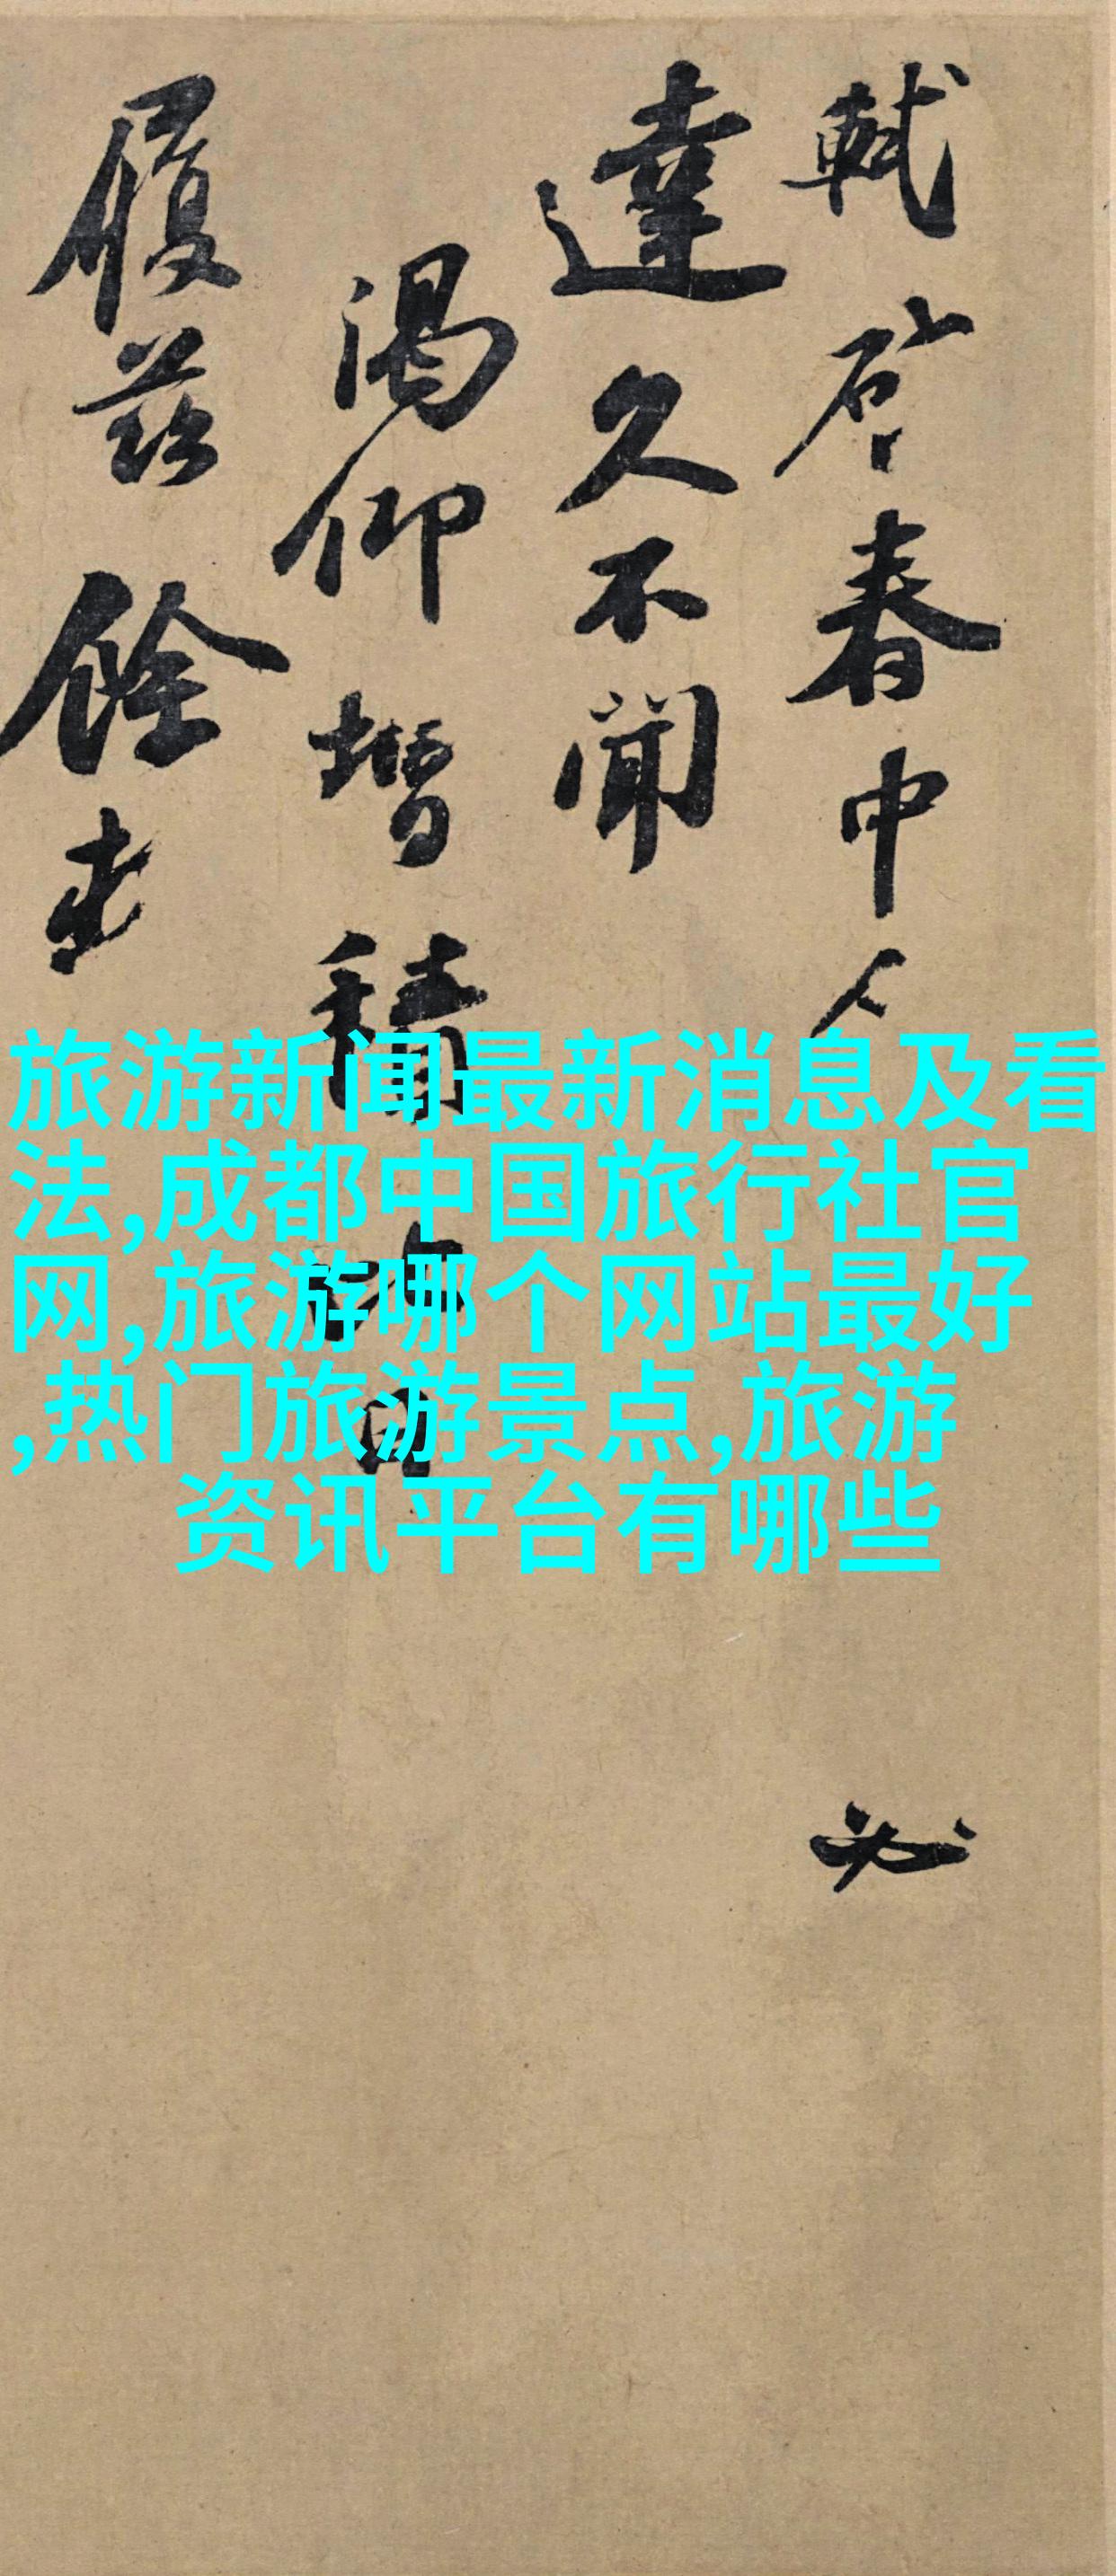 軾啓春中人
必
達久不聞
渴仰增積
日
履茲餘
旅游新闻最新消息及看
法,成都中国旅行社官
网,旅游哪个网站最好
,热门旅游景点,旅游
资讯平台有哪些